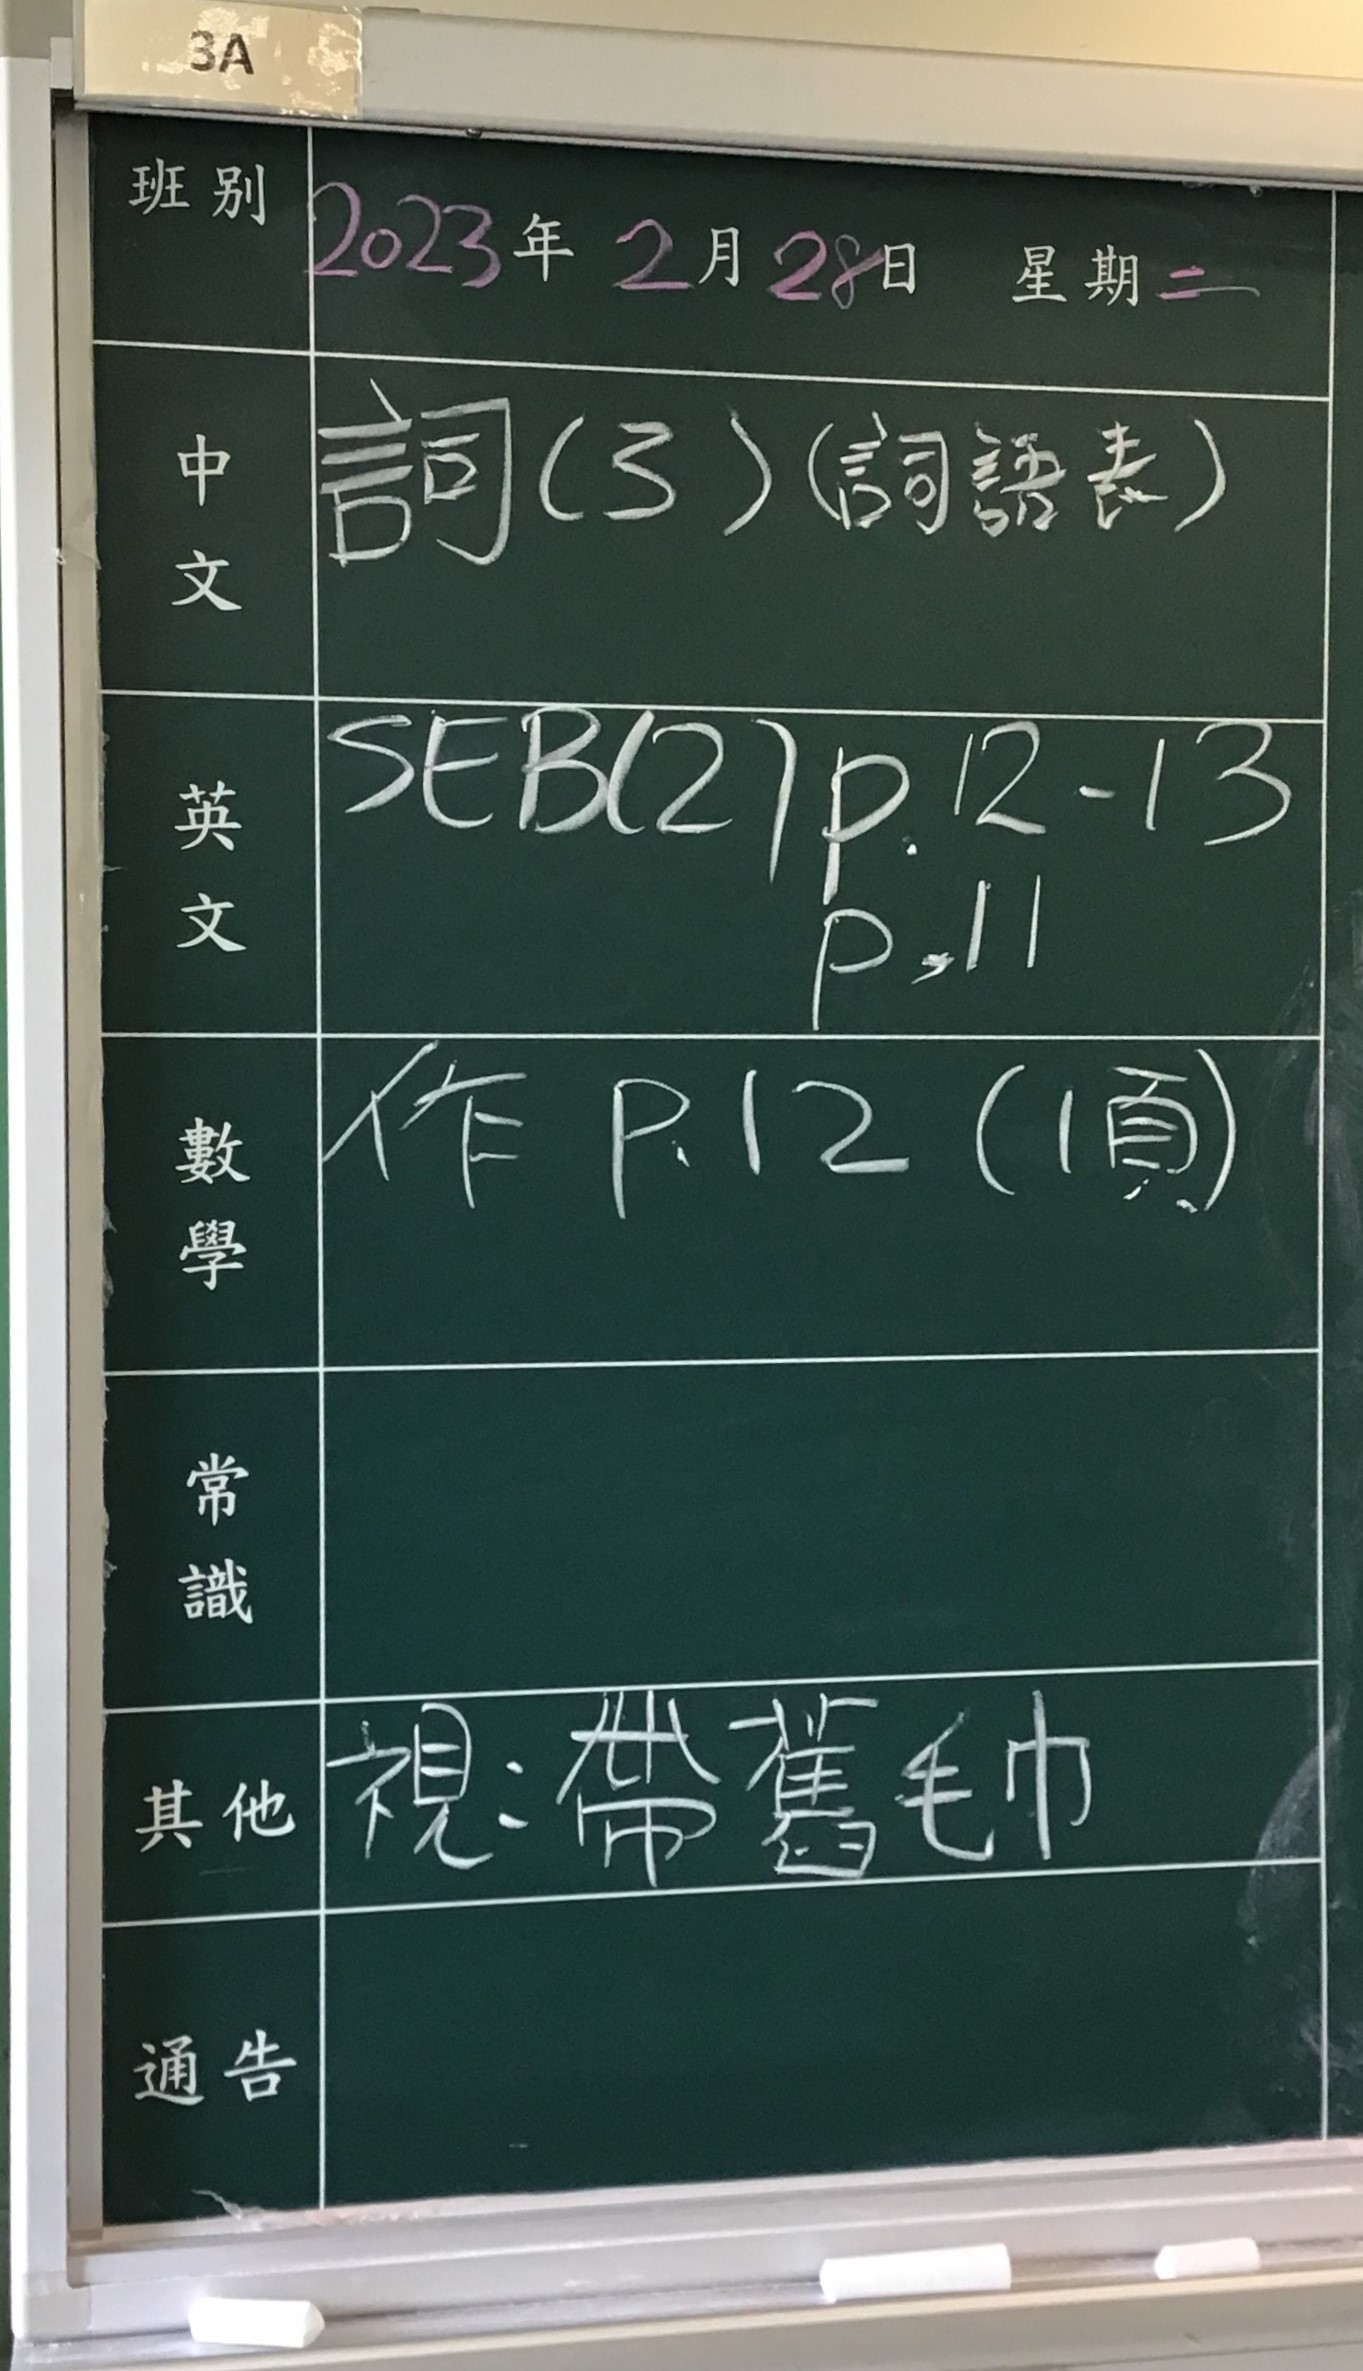 3A
班別 2023年 2月28日 星期二
中文 詞(3)(詞語表)
英文 SEB(2) p.12-13
p.11
數學 作 P.12 (1頁)
常識
其他 視:帶舊毛巾
通告